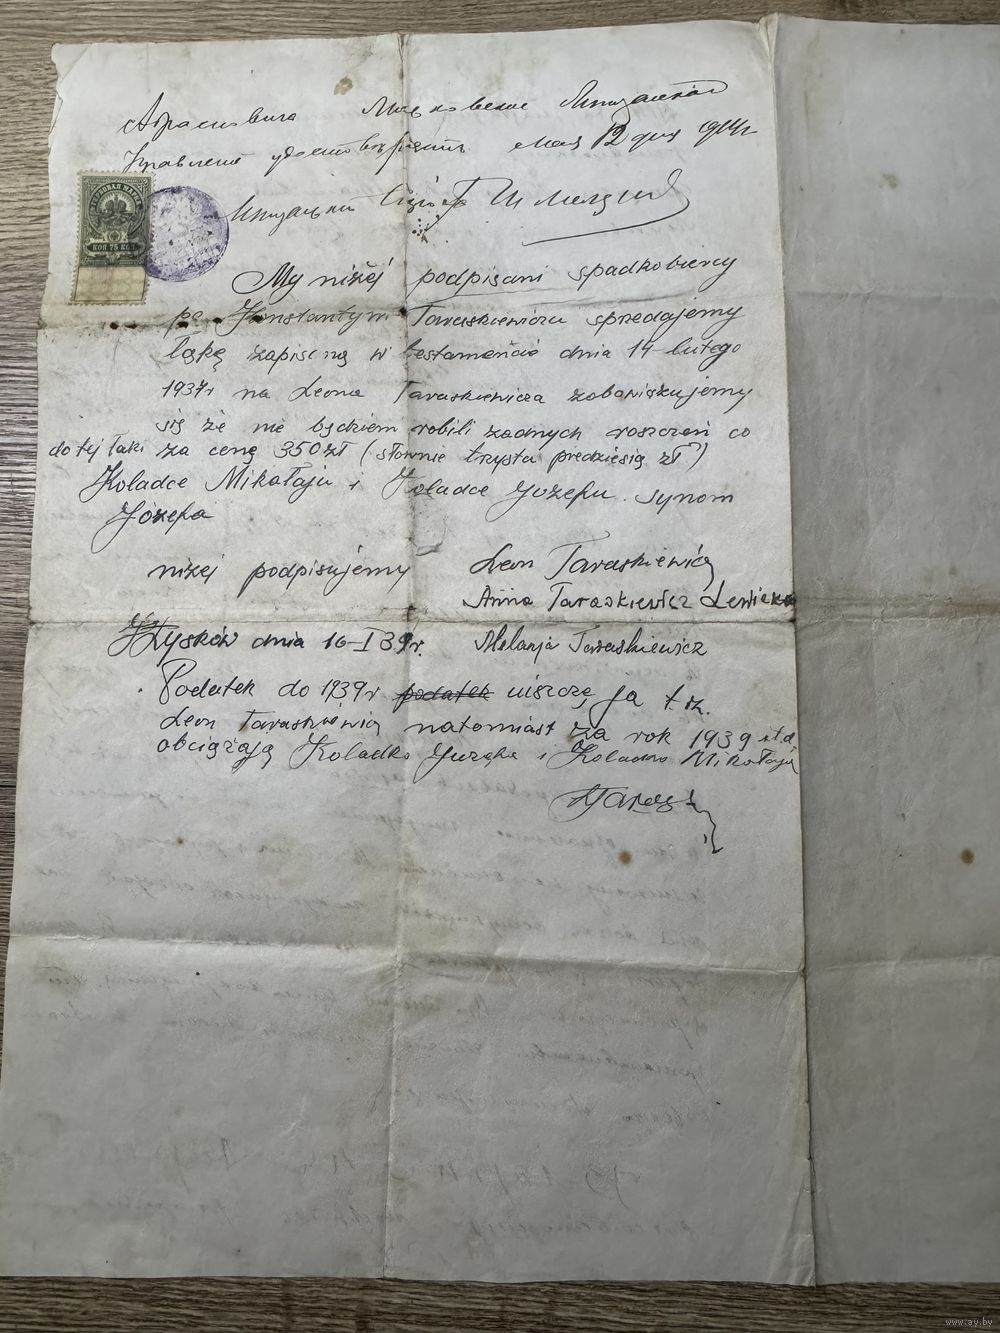 Управление удостоверяетъ мая 12 дня 1914 г
ГЕРБОВАЯ МАРКА
КОП 75 КОП
Мещанский
My niżej podpisani spadkobiercy
po Konstantym Taraskiewiczu sprzedajemy
łąkę zapisaną w testamencie dnia 14 lutego
1937r na Leona Taraskiewicza zobowiązujemy
się że nie będziem robili żadnych roszczeń co
do tej łąki za cenę 350 zł (słownie trzysta piędziesią zł)
Koladce Mikołaju i Koladce Józefu synom
Józefa
niżej podpisujemy Leon Taraskiewicz
Anna Taraskiewicz
Łysków dnia 16-I 39 r. Melanja Taraskiewicz
Podatek do 1939 r podatek uiszczę ja t.zn.
Leon Taraskiewicz natomiast za rok 1939 itd
obciążają Koladko Juzefa i Koladko Mikołaja
www.ay.by